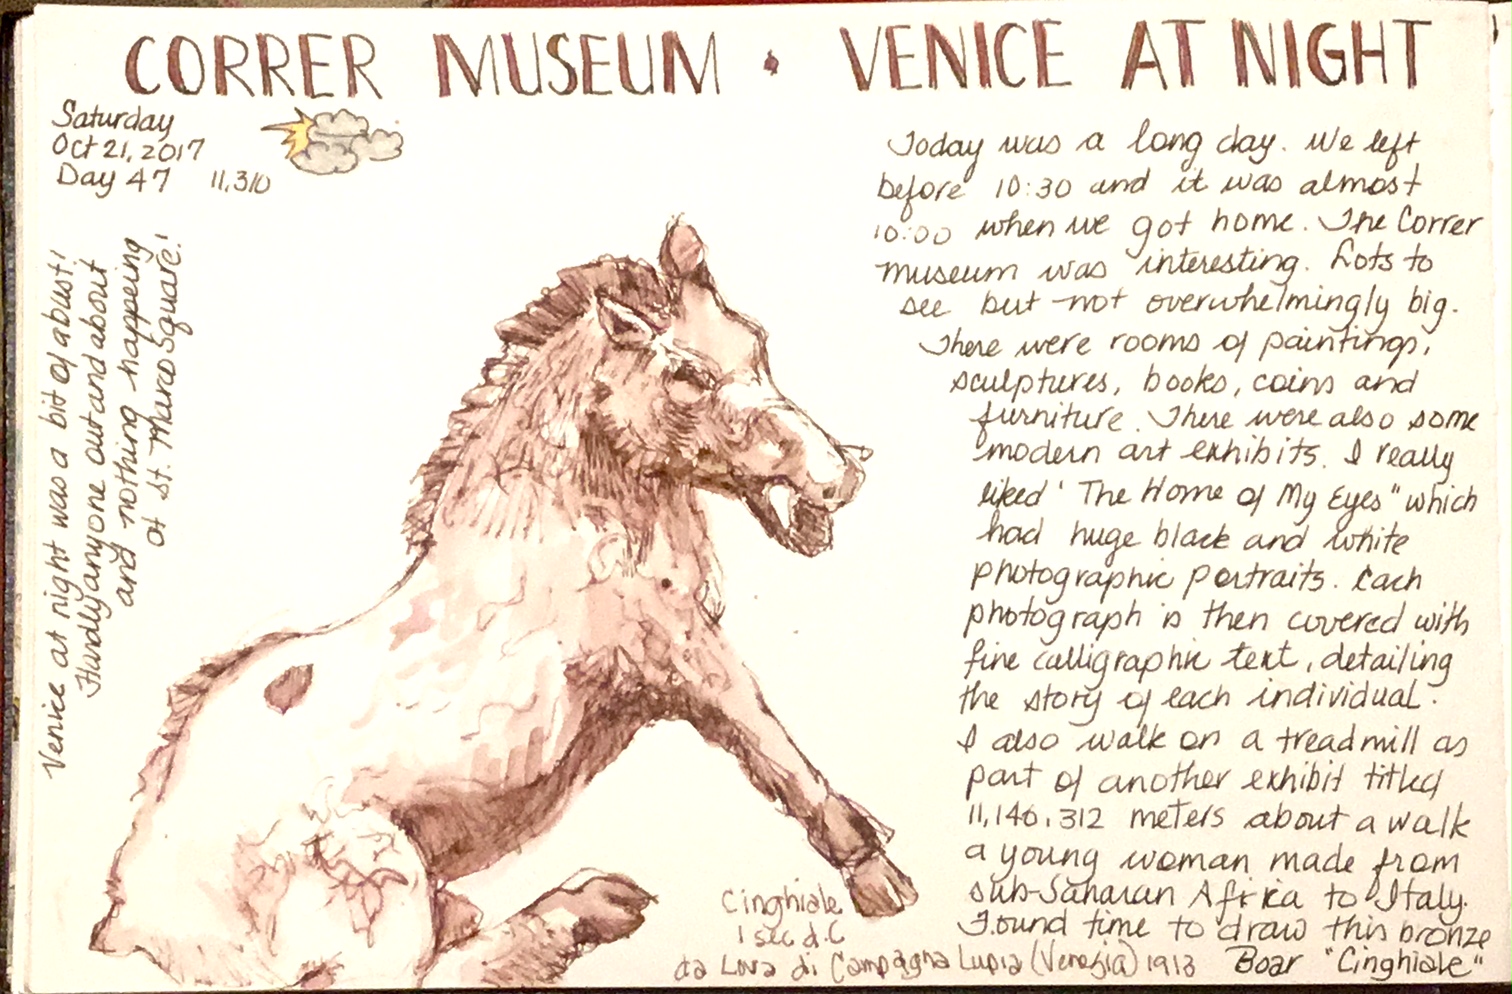 CORRER MUSEUM · VENICE AT NIGHT
Saturday
Oct 21, 2017
Day 47 11,310
Venice at night was a bit of a bust!
Hardly anyone out and about
and nothing happening
at St. Marco Square!
Today was a long day. We left
before 10:30 and it was almost
10:00 when we got home. The Correr
museum was interesting. Lots to
see but not overwhelmingly big.
There were rooms of paintings,
sculptures, books, coins and
furniture. There were also some
modern art exhibits. I really
liked ' The Home of My Eyes" which
had huge black and white
photographic portraits. Each
photograph is then covered with
fine calligraphic text, detailing
the story of each individual.
I also walk on a treadmill as
part of another exhibit titled
11,140,312 meters about a walk
a young woman made from
sub-Saharan Africa to Italy.
Found time to draw this bronze
Boar "Cinghiale"
Cinghiale
1 sec d.C
da Lova di Campagna Lupia (Venezia) 1913